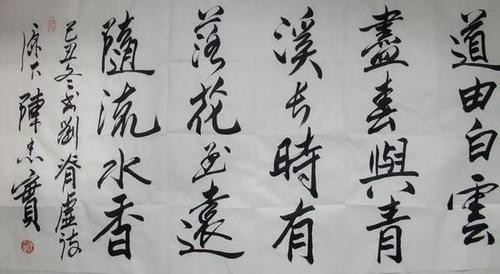 道由白雲
盡春與青
溪長時有
落花至遠
隨流水香
己丑冬書劉脊虛詩
陳志實